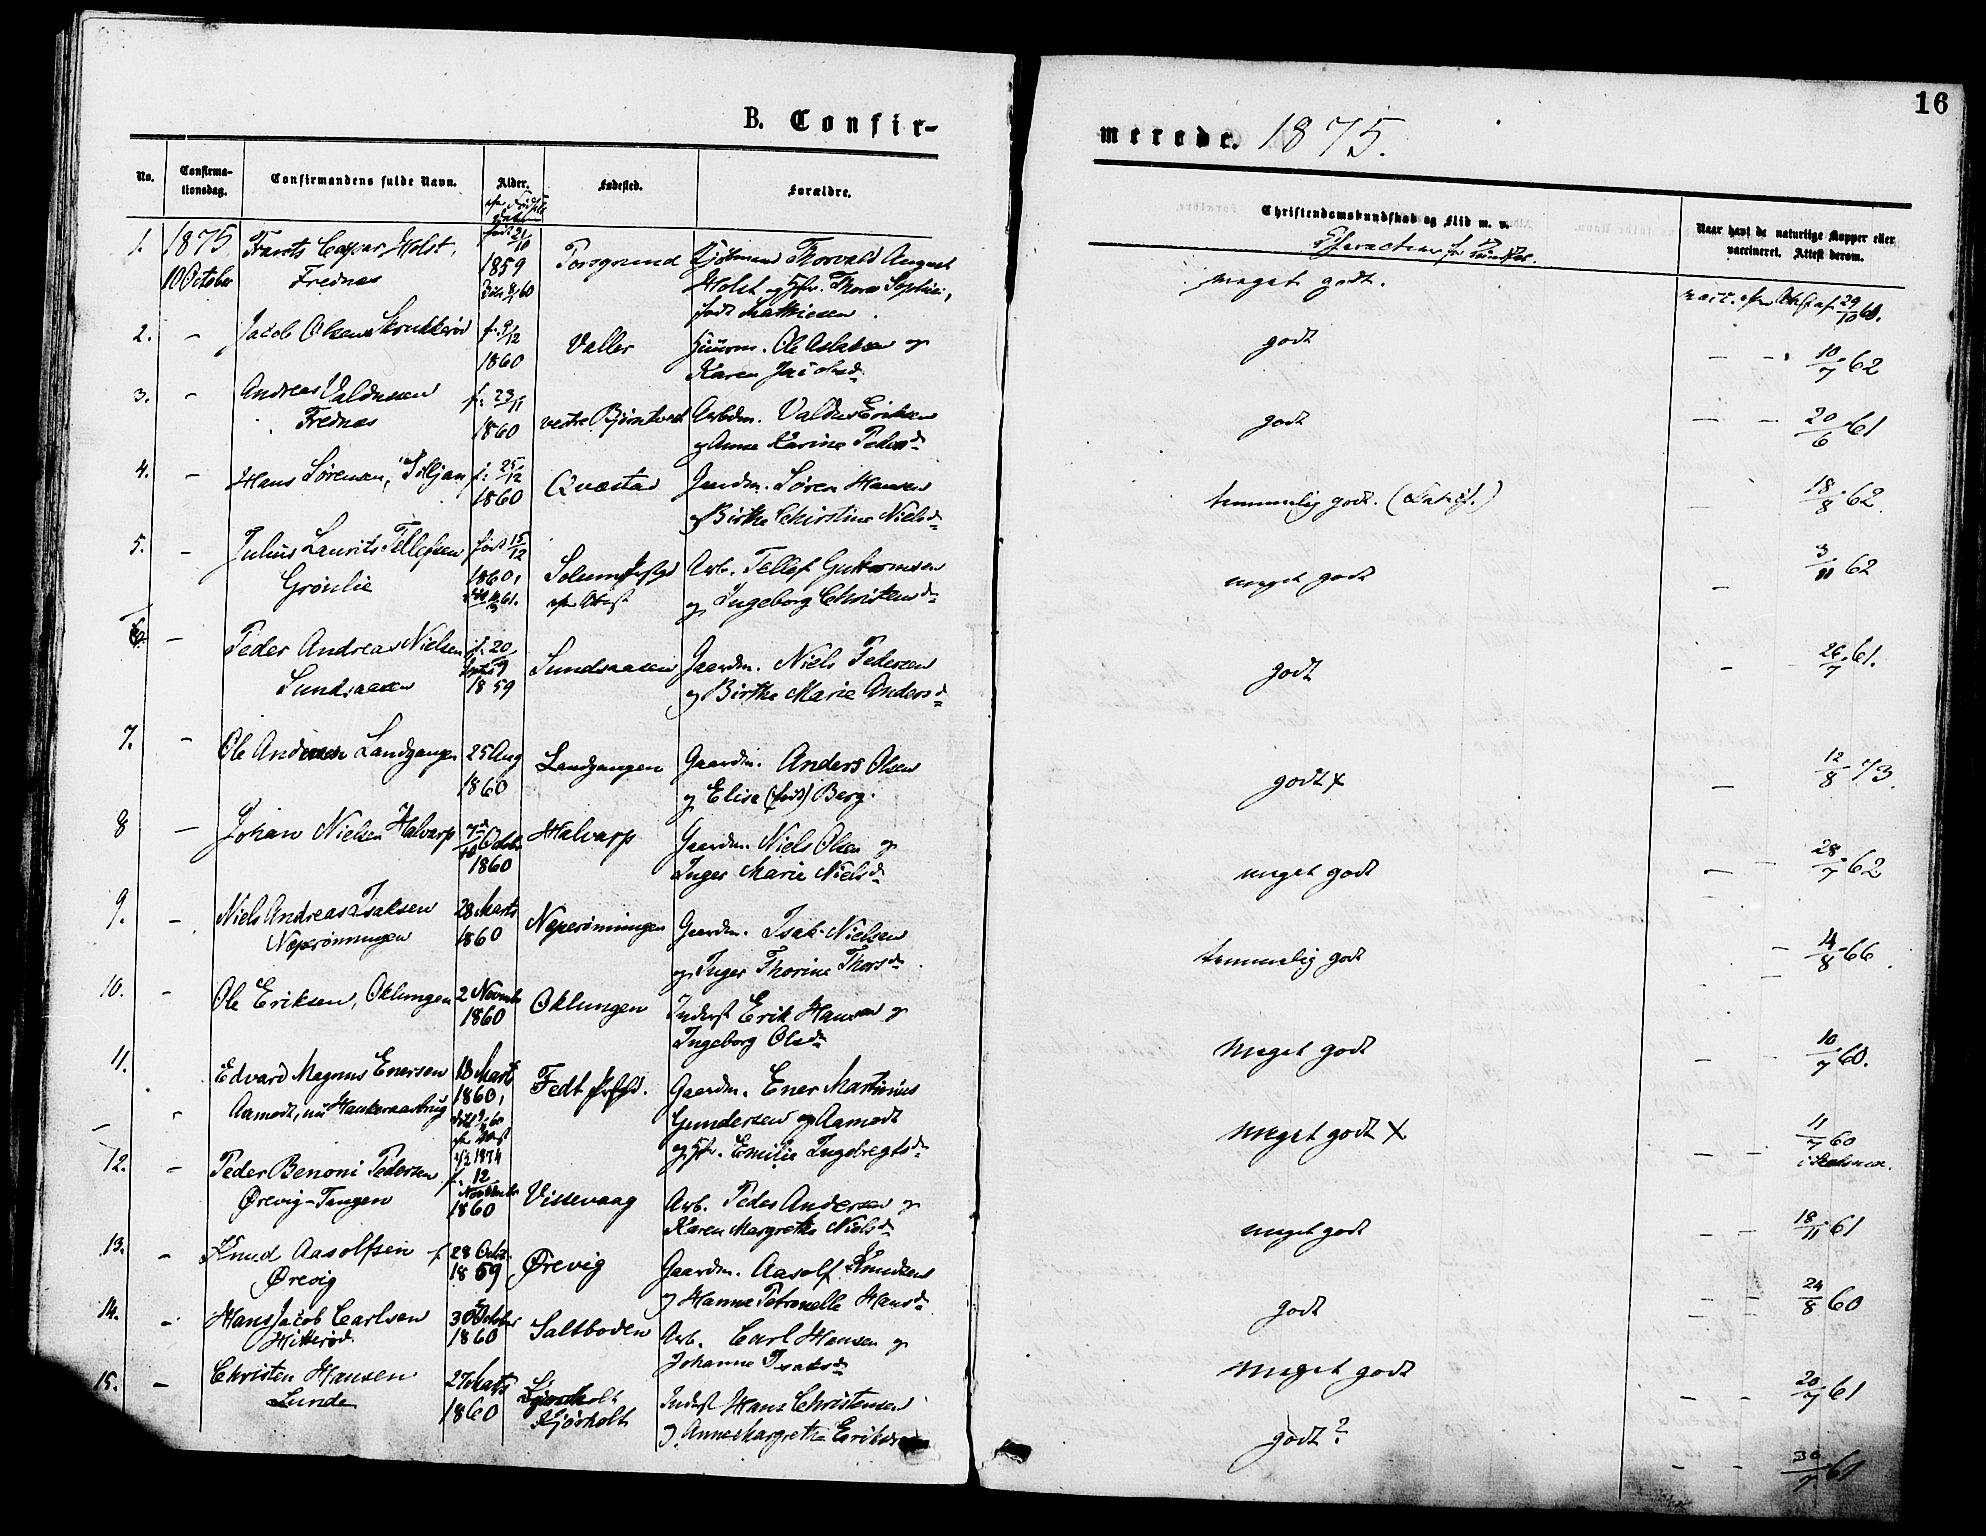 16
B. Confir-
merede. 1875.
No.
Confirma-
tionsdag.
Confirmandens fulde Navn.
Alder.
Fødested.
Forældre.
Christendomskundskab og Flid m. v.
Naar havt de naturlige Kopper eller
vaccineret. Attest derom.
1. 1875 Frants Caspar Holst, født 21/10 Porsgrund Thorvald August
10 October Frednæs 1859 Holst og Thora Sophie,
60 født
meget godt. 29/10 60.
2. - Jacob Olsen f. 9/12 Valler Ole Aslaksen og
1860 Karen Jacobsd.
godt - - 10/7 62
3. - Andreas Valdersen f. 23/11 vestre Bjørntvedt Arbdm. Valder Eriksen
Frednæs 1860 og Anne Karine Pedersd.
godt - - 20/6 61
4. - Hans Sørensen, f. 25/12 Qvæstad Gaardm. Søren Hansen
1860 og Birthe Christine Nielsd.
temmelig godt. - 18/8 62.
5. - Julius Laurits Tellefsen født 15/12 Solum Arb. Tellef Guttormsen
Grønlie 1860, og Ingeborg Christensd.
61.
meget godt - 3/11 62
6. - Peder Andreas Nielsen f. 20 Sundsaasen Gaardm. Niels Pedersen
Sundsaasen 1859 og Birthe Marie Andersd.
godt - 26/7 61.
7. - Ole Andersen Landgangen 25 Aug Landgangen Gaardm. Anders Olsen
1860 og Elise (født) Berg.
godt x - 12/8 73.
8 - Johan Nielsen Halvarp October Halvarp Gaardm. Niels Olsen og
1860 Inger Marie Nielsd.
meget godt - - 28/7 62
9. - Niels Andreas Isaksen 28 Marts Neperønningen Gaardm. Isak Nielsen
Neperønningen 1860 og Inger Thorine Thorsd.
temmelig godt - 14/8 66
10. - Ole Eriksen, Oklungen 2 Novmb Oklungen Inderst Erik Hansen og
1860 Ingeborg Olsd.
Meget godt - - 10/7 60.
11. - Edvard Magnus Enersen 13 Marts Fedt Gaardm. Ener Martinius
Aamodt, nu 1860, Gundersen Aamodt
1874 og Emilie Ingebregtsd.
meget godt x - - 11/7 60
12. - Peder Benoni Pedersen f. 12 Vissevaag Arb. Peder Andersen og
Ørevig-Tangen Novemb. 1860 Karen Margrethe Nielsd.
meget godt - - 18/11 61
13. - Knud Aasolfsen f. 28 Octb. Ørevig Gaardm. Aasolf Knudsen
Ørevig 1859 og Hanna Petronelle Hansd.
godt - - 24/8 60
14. - Hans Jacob Carlsen 30 October Saltboden Arb. Carl Hansen og
Hitterød 1860 Johanne Isaksd.
Meget godt - - 20/7 61
15. - Christen Hansen 27 Marts Inderst Hans Christensen
Lunde 1860 Kjørholt og Anne Margrethe
godt? - - 30/7 61